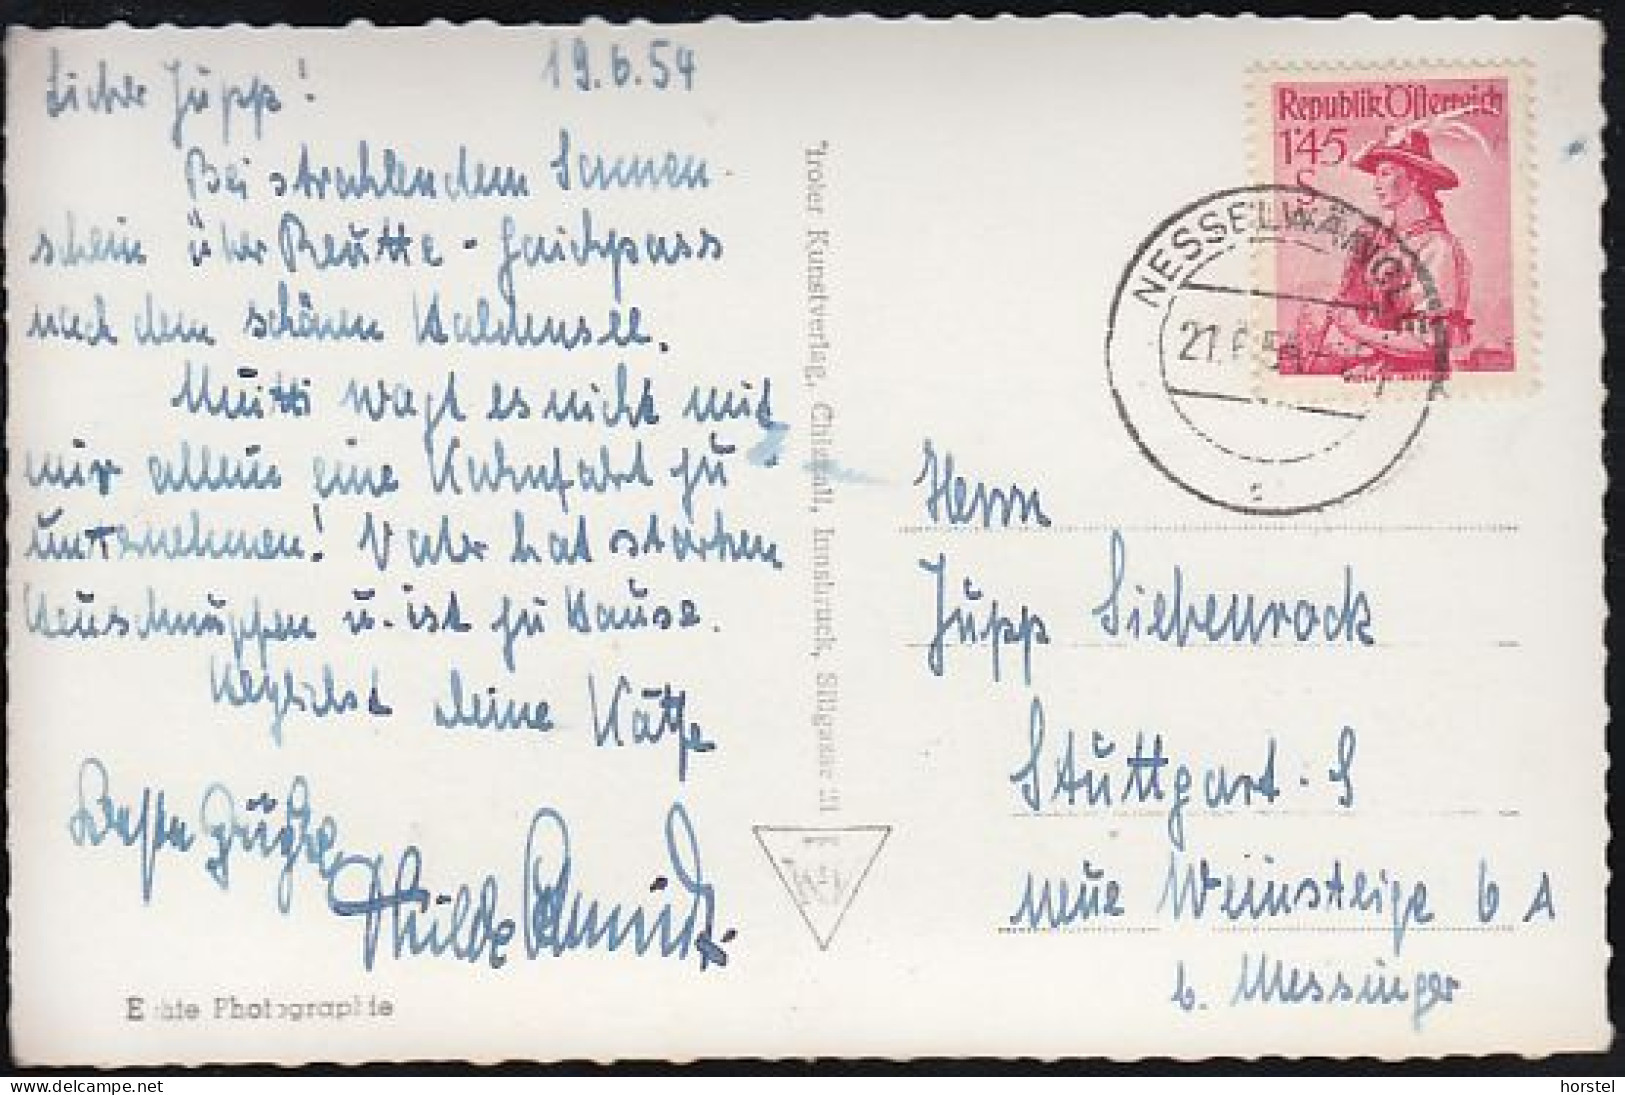 19.6.54
Lieber Jupp!
Bei strahlendem Sonnen-
schein über Reutte - Gaichpass
nach dem schönen Haldensee.
Mutti wagt es nicht mit
mir allein eine Kahnfart zu
unternehmen! Vater hat starken
Heuschnuppfen u. ist zu Hause.
Herzlichst deine Käthe
Beste Grüße
Hilde
Echte Photographie
Tiroler Kunstverlag, Chizzali, Innsbruck, Sillgasse 21
Republik Österreich
1'45
S
NESSELWÄNGLE
21.6.54
Herrn
Jupp Siebenrock
Stuttgart-S
neue Weinsteige 6 A
b. Messinger
horstel